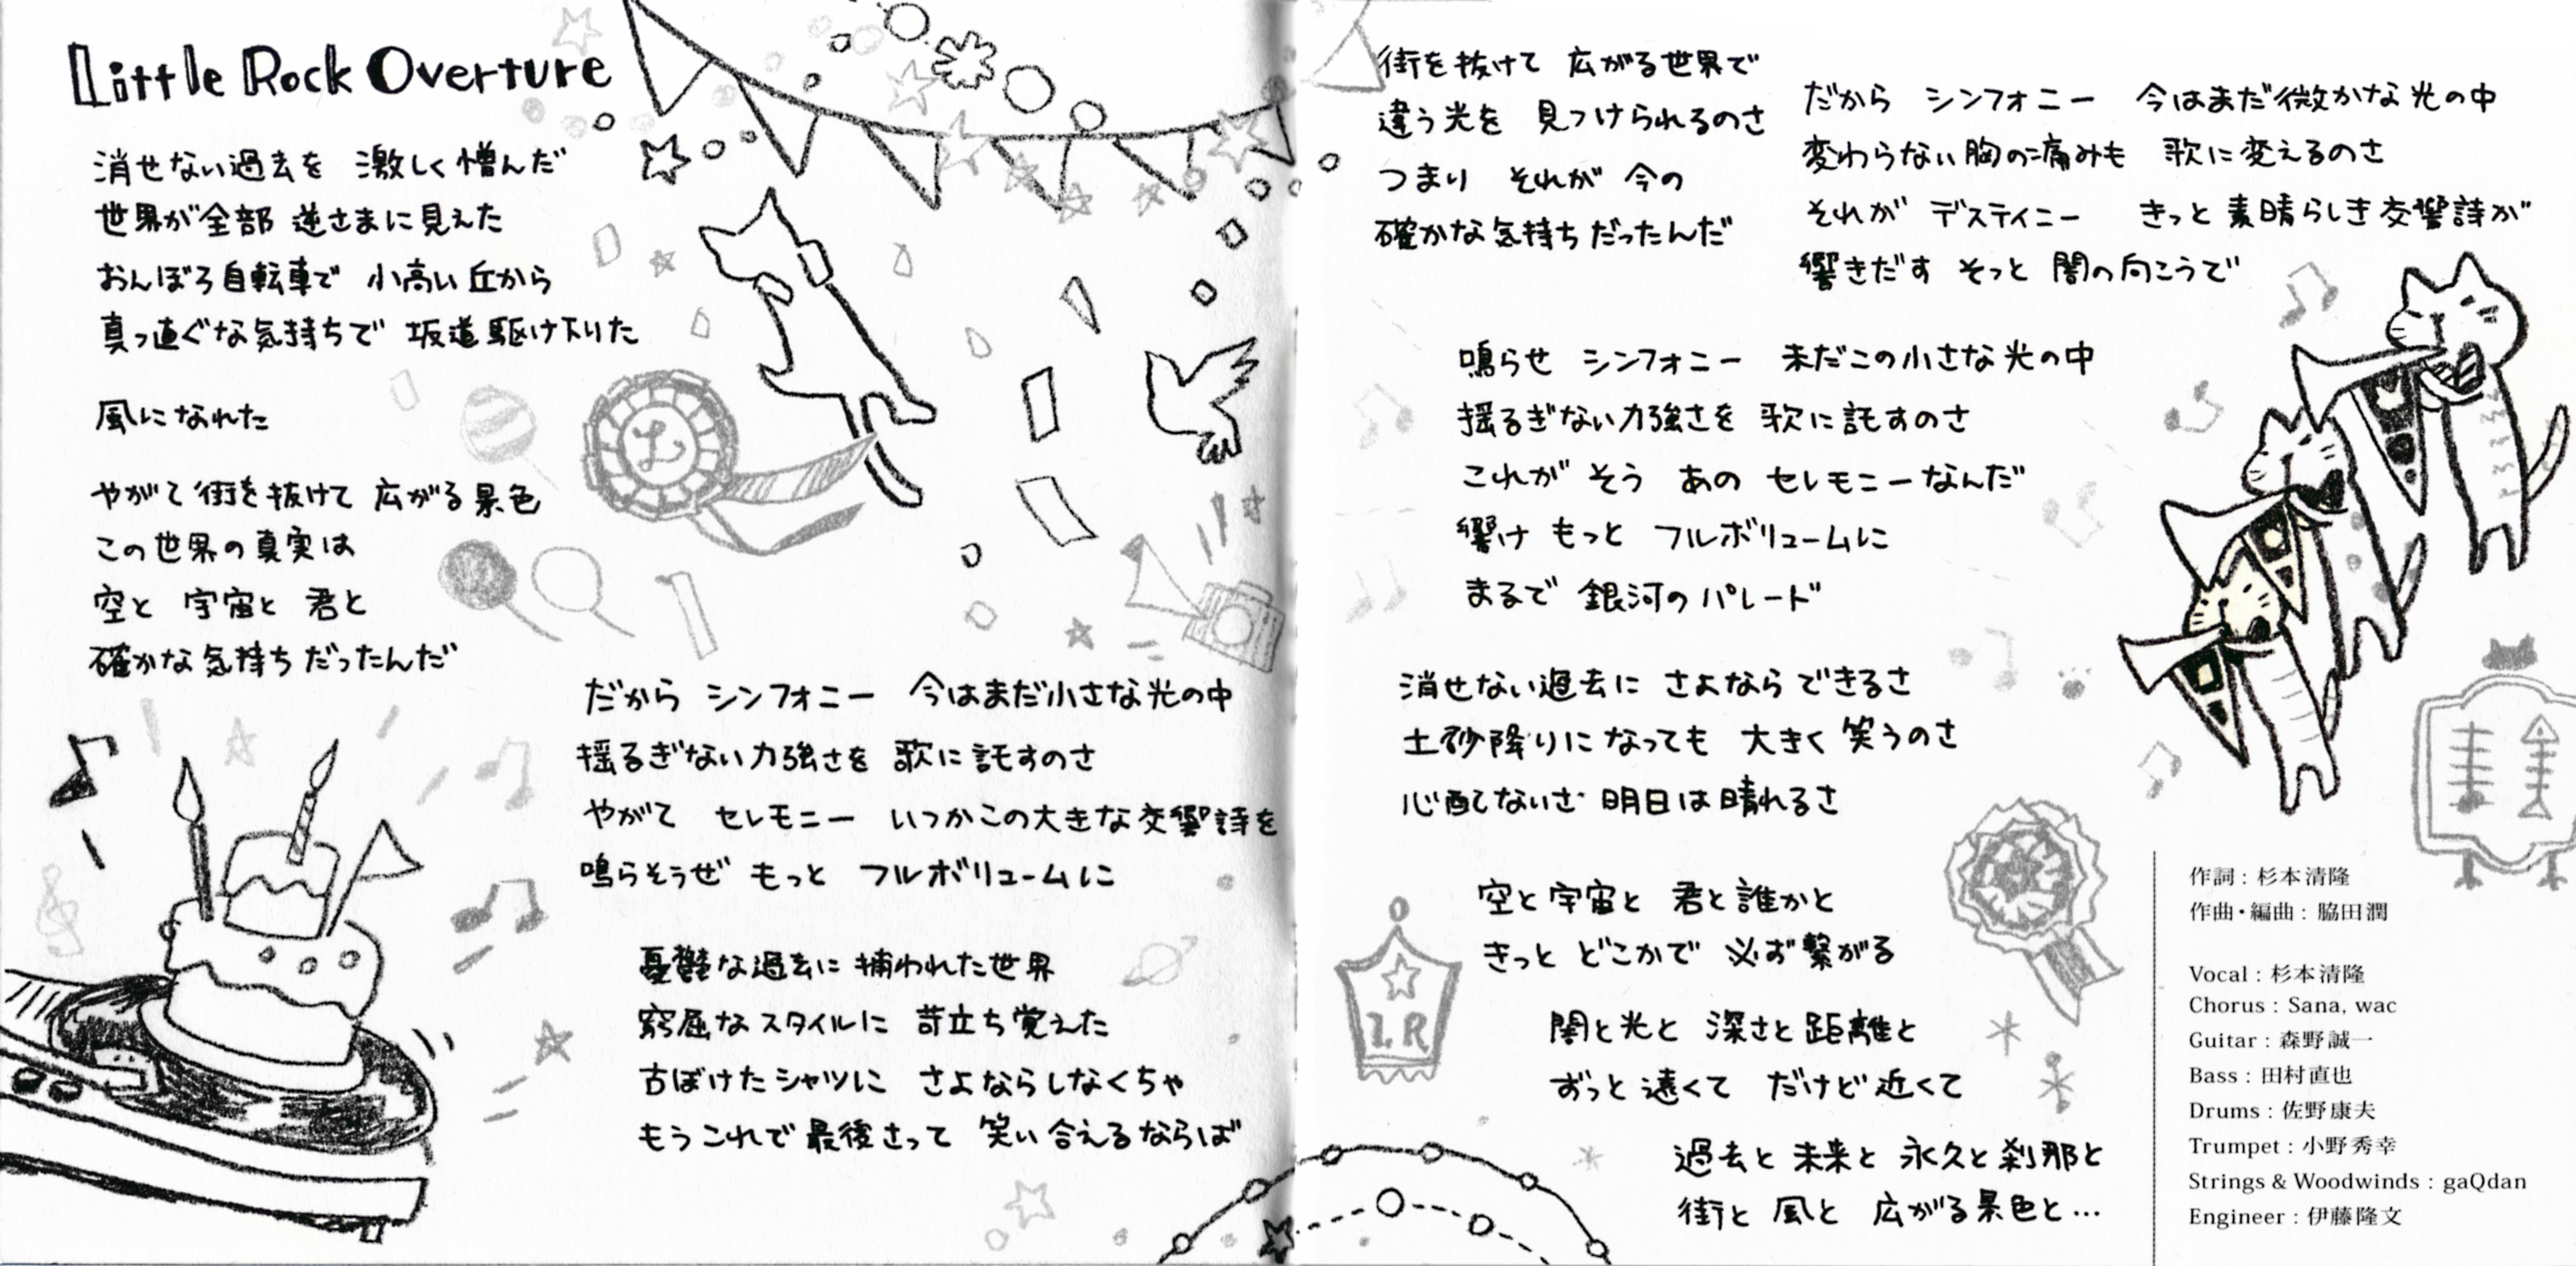 Little Rock Overture
消せない過去を 激しく憎んだ
世界が全部 逆さまに見えた
おんぼろ自転車で 小高い丘から
真っ直ぐな気持ちで 坂道駆け下りた
風になれた
やがて街を抜けて 広がる景色
この世界の真実は
空と 宇宙と 君と
確かな気持ちだったんだ
だから シンフォニー 今はまだ小さな光の中
揺るぎない力強さを 歌に託すのさ
やがて セレモニー いつかこの大きな交響詩を
鳴らそうぜ もっと フルボリュームに
憂鬱な過去に捕われた世界
窮屈なスタイルに 苛立ち覚えた
古ぼけたシャツに さよならしなくちゃ
もうこれで最後さって 笑い合えるならば
街を抜けて 広がる世界で
違う光を 見つけられるのさ
つまり それが 今の
確かな気持ちだったんだ
だから シンフォニー 今はまだ微かな光の中
変わらない胸の痛みも 歌に変えるのさ
それが デスティニー きっと素晴らしき交響詩が
響きだす そっと 闇の向こうで
鳴らせ シンフォニー 未だこの小さな光の中
揺るぎない力強さを 歌に託すのさ
これが そう あの セレモニーなんだ
響け もっと フルボリュームに
まるで 銀河のパレード
消せない過去に さよならできるさ
土砂降りになっても 大きく笑うのさ
心配ないさ 明日は晴れるさ
空と宇宙と 君と誰かと
きっと どこかで 必ず繋がる
闇と光と 深さと距離と
ずっと遠くて だけど近くて
過去と未来と 永久と刹那と
街と風と 広がる景色と…
L
L.R
作詞：杉本清隆
作曲・編曲：脇田潤
Vocal：杉本清隆
Chorus：Sana, wac
Guitar：森野誠一
Bass：田村直也
Drums：佐野康夫
Trumpet：小野秀幸
Strings & Woodwinds：gaQdan
Engineer：伊藤隆文